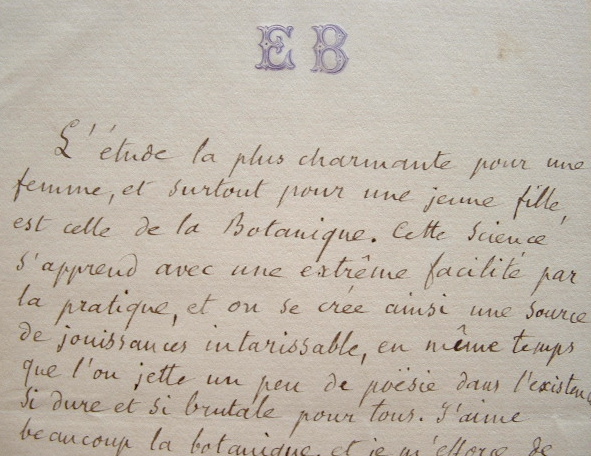 E B
L'étude la plus charmante pour une
femme, et surtout pour une jeune fille,
est celle de la Botanique. Cette science
s'apprend avec une extrême facilité par
la pratique, et on se crée ainsi une source
de jouissances intarissable, en même temps
que l'on jette un peu de poësie dans l'existence
si dure et si brutale pour tous. J'aime
beaucoup la botanique, et je m'efforce de